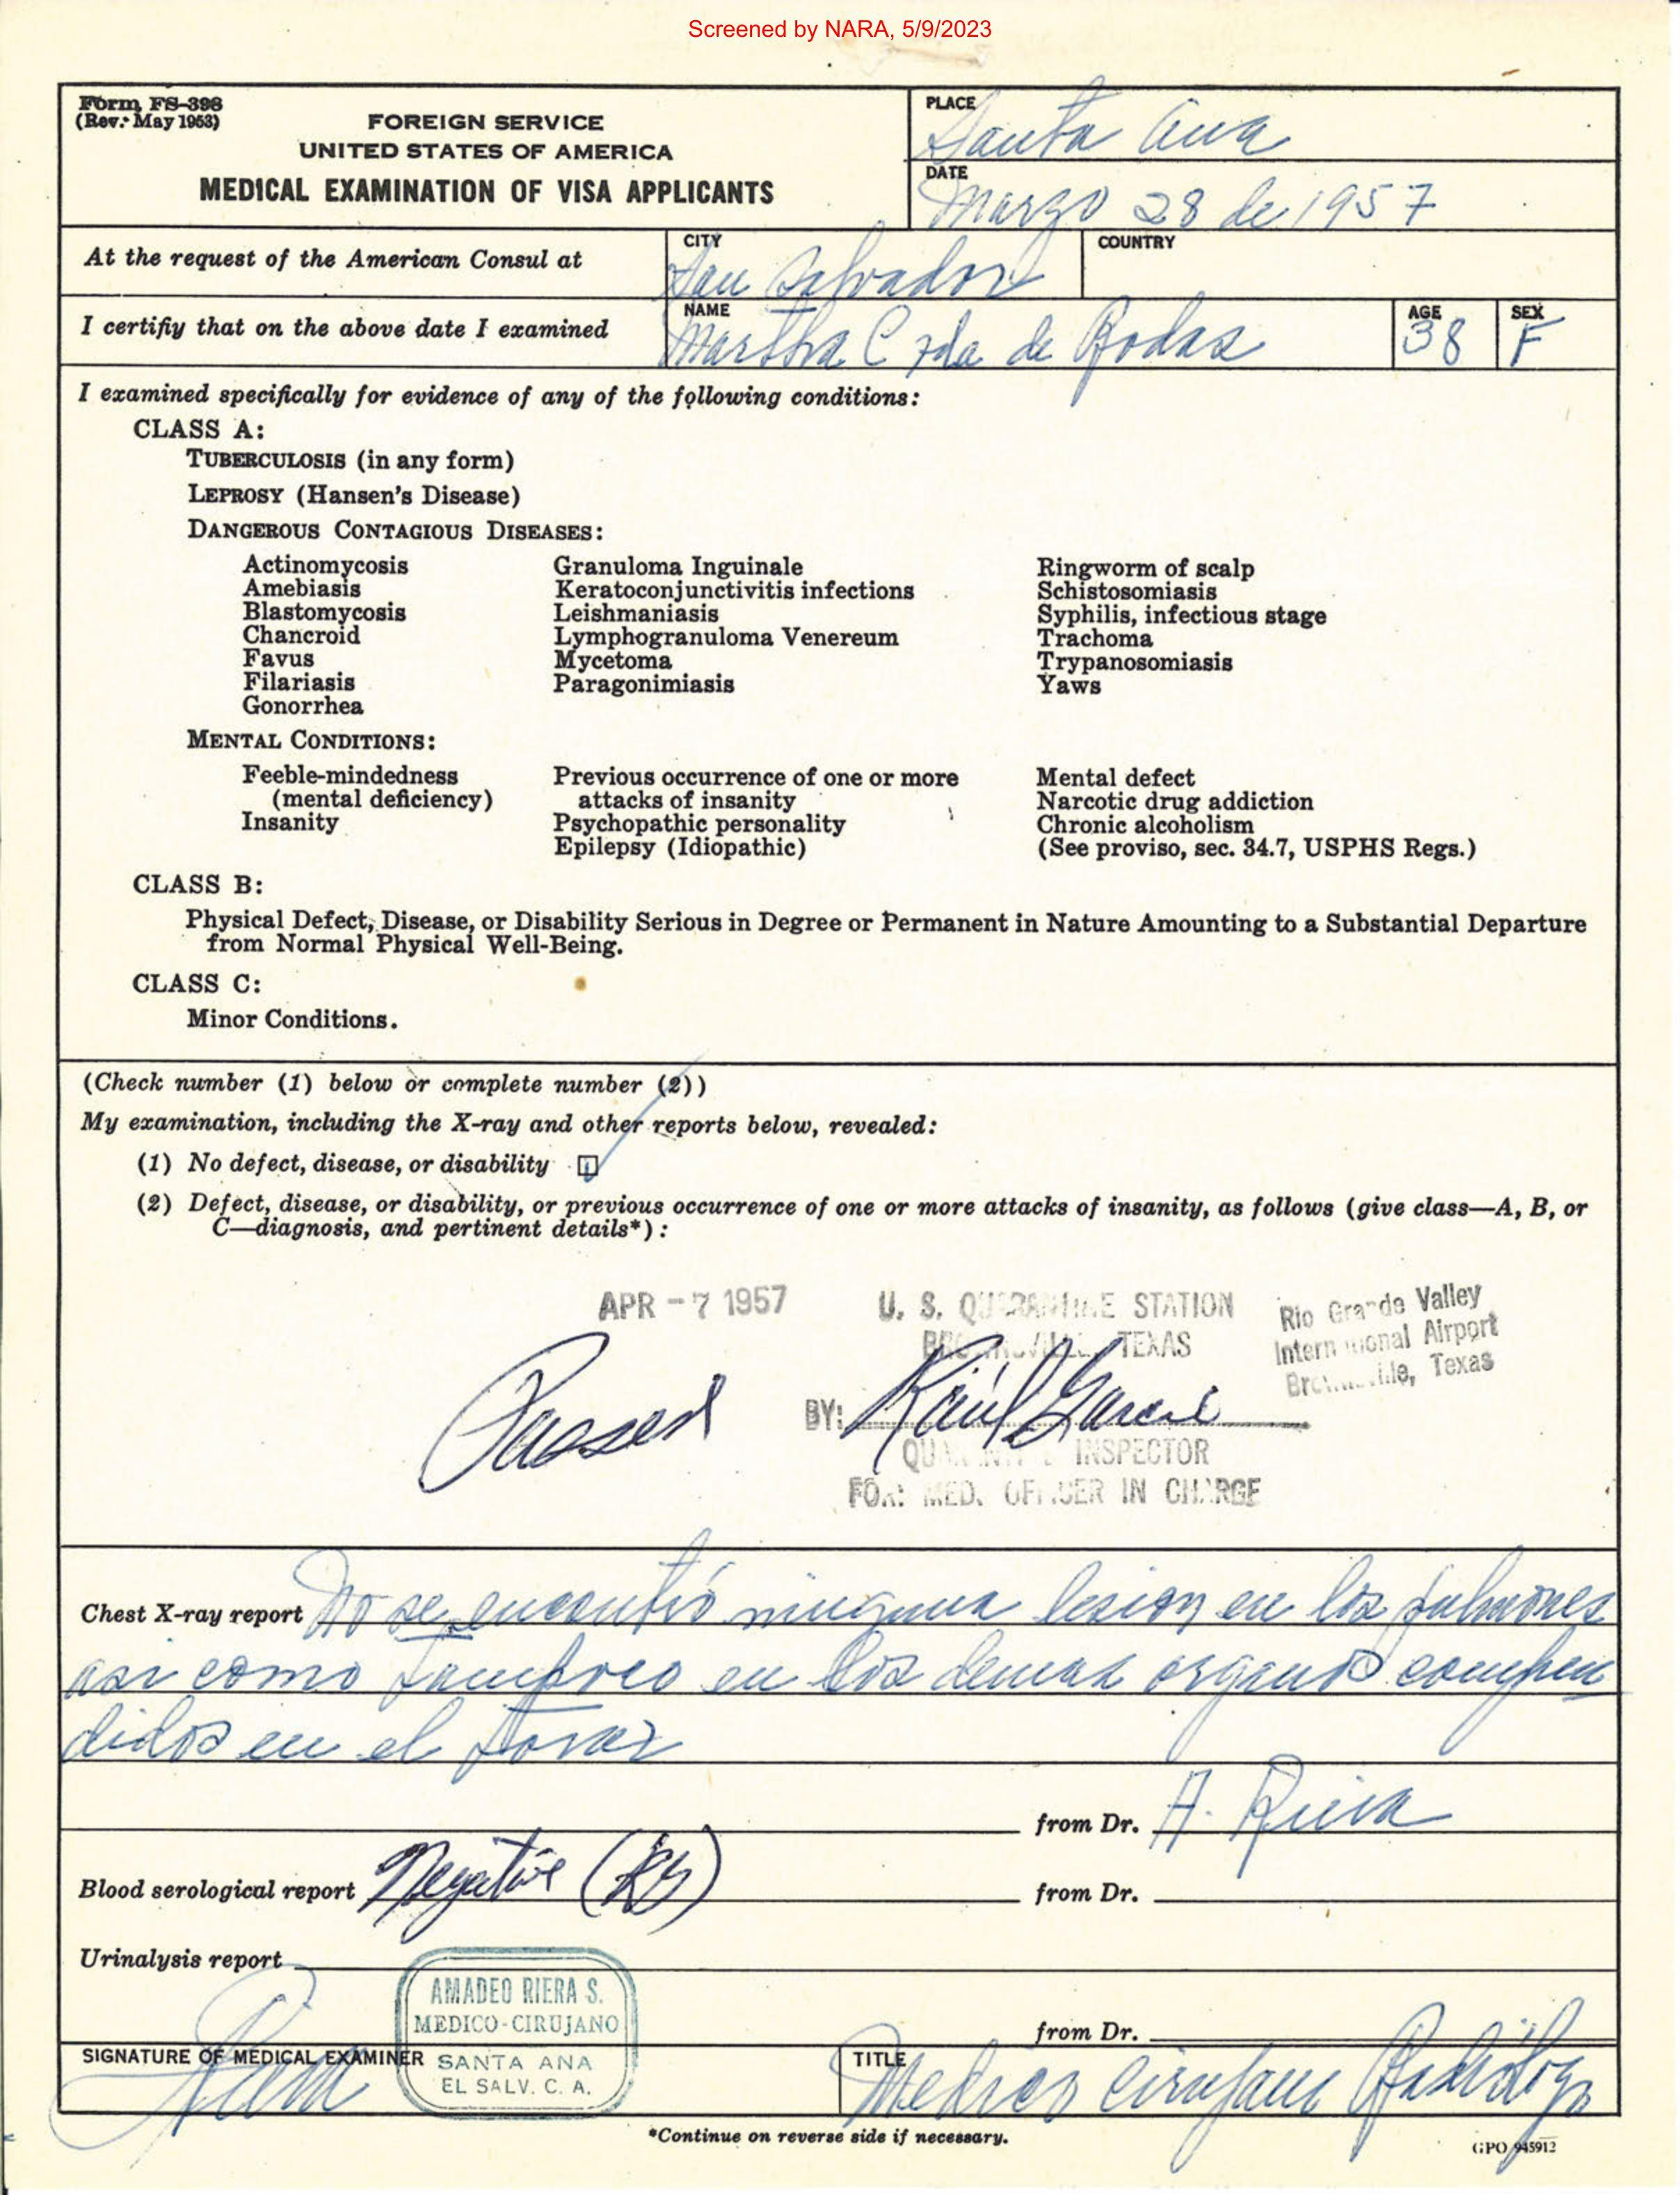 Screened by NARA, 5/9/2023
Form FS-398
(Rev. May 1953)
FOREIGN SERVICE
UNITED STATES OF AMERICA
MEDICAL EXAMINATION OF VISA APPLICANTS
PLACE
Santa Ana
DATE
Marzo 28 de 1957
At the request of the American Consul at
CITY
San Salvador
COUNTRY
I certifiy that on the above date I examined
NAME
Martha C vda de Rodas
AGE
38
SEX
F
I examined specifically for evidence of any of the following conditions:
CLASS A:
TUBERCULOSIS (in any form)
LEPROSY (Hansen's Disease)
DANGEROUS CONTAGIOUS DISEASES:
Actinomycosis
Amebiasis
Blastomycosis
Chancroid
Favus
Filariasis
Gonorrhea
Granuloma Inguinale
Keratoconjunctivitis infections
Leishmaniasis
Lymphogranuloma Venereum
Mycetoma
Paragonimiasis
Ringworm of scalp
Schistosomiasis
Syphilis, infectious stage
Trachoma
Trypanosomiasis
Yaws
MENTAL CONDITIONS:
Feeble-mindedness
(mental deficiency)
Insanity
Previous occurrence of one or more
attacks of insanity
Psychopathic personality
Epilepsy (Idiopathic)
Mental defect
Narcotic drug addiction
Chronic alcoholism
(See proviso, sec. 34.7, USPHS Regs.)
CLASS B:
Physical Defect, Disease, or Disability Serious in Degree or Permanent in Nature Amounting to a Substantial Departure
from Normal Physical Well-Being.
CLASS C:
Minor Conditions.
(Check number (1) below or complete number (2))
My examination, including the X-ray and other reports below, revealed:
(1) No defect, disease, or disability
(2) Defect, disease, or disability, or previous occurrence of one or more attacks of insanity, as follows (give class—A, B, or
C—diagnosis, and pertinent details*):
APR - 7 1957
U. S. QUARANTINE STATION
BROWNSVILLE, TEXAS
Rio Grande Valley
International Airport
Brownsville, Texas
Passed
BY: Raúl Garcia
QUARANTINE INSPECTOR
FOR: MED. OFFICER IN CHARGE
Chest X-ray report No se encontró ninguna lesion en los pulmones
asi como tampoco en los demas organos compren
didos en el torax
from Dr. A. Riera
Blood serological report Negative
from Dr.
Urinalysis report
from Dr.
AMADEO RIERA S.
MEDICO-CIRUJANO
SANTA ANA
EL SALV. C. A.
SIGNATURE OF MEDICAL EXAMINER
Riera
TITLE
Medico cirujano Radiólogo
*Continue on reverse side if necessary.
GPO 945912